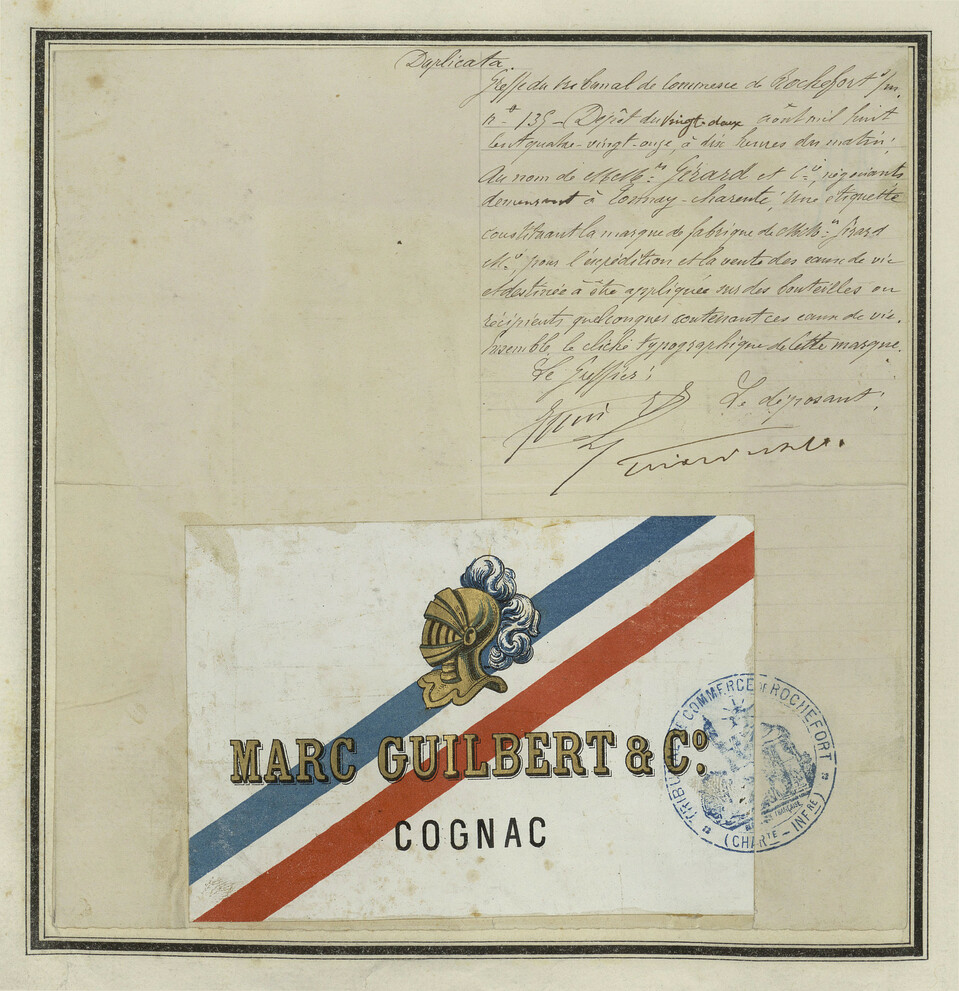 Duplicata.
Greffe du tribunal de Commerce de Rochefort s/m.
n° 135 – Dépôt du vingt-deux août mil huit
cent quatre-vingt-onze, à dix heures du matin;
Au nom de MM.rs Gérard et Cie, négociants
demeurant à Tonnay-Charente; Une étiquette
constituant la marque de fabrique de MM.rs Gérard
et Cie, pour l'expédition et la vente des eaux de vie
et destinée à être appliquée sur des bouteilles ou
récipients quelconques contenant ces eaux de vie.
Ensemble le cliché typographique de cette marque.
Le Greffier;
Le déposant;
MARC GUILBERT & Co.
COGNAC
TRIBUNAL DE COMMERCE DE ROCHEFORT
(CHARTE - INFRE)